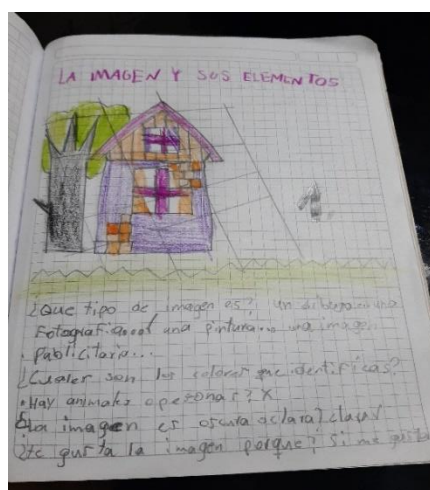 LA IMAGEN Y SUS ELEMENTOS
¿Que tipo de imagen es? un dibujo, una
Fotografia una pintura.. una imagen
Publicitaria...
¿Cuales son los colores que identificas?
Hay animales o personas? X
La imagen es oscura o clara? clara
¿te gusta la imagen porque? Si me gusta